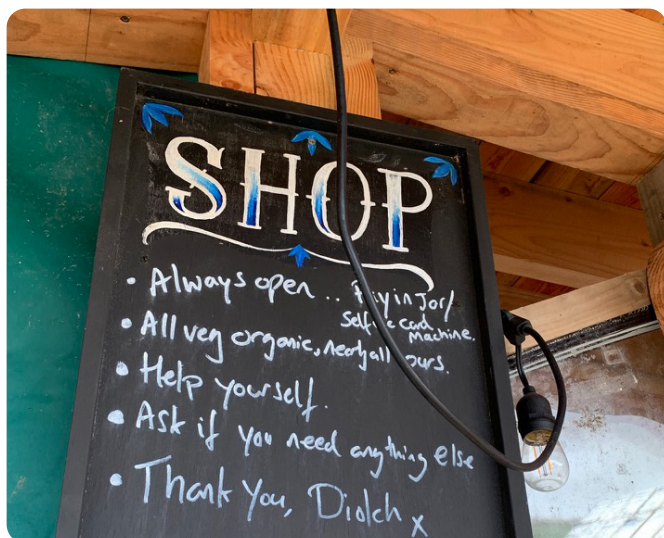 SHOP
• Always open .. Pay in Jar/
Self card Machine.
• All veg organic, nearly all ours.
• Help yourself.
• Ask if you need anything else
• Thank You, Diolch x